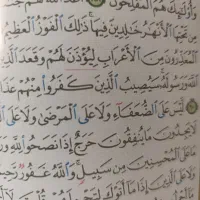 وَأُوْلَٰٓئِكَ هُمُ ٱلْمُفْلِحُونَ
مِن تَحْتِهَا ٱلْأَنْهَٰرُ خَٰلِدِينَ فِيهَا ذَٰلِكَ ٱلْفَوْزُ ٱلْعَظِيمُ
ٱلْمُعَذِّرُونَ مِنَ ٱلْأَعْرَابِ لِيُؤْذَنَ لَهُمْ وَقَعَدَ ٱلَّذِينَ
ٱللَّهَ وَرَسُولَهُۥ سَيُصِيبُ ٱلَّذِينَ كَفَرُوا۟ مِنْهُمْ
لَّيْسَ عَلَى ٱلضُّعَفَآءِ وَلَا عَلَى ٱلْمَرْضَىٰ وَلَا عَلَى
لَا يَجِدُونَ مَا يُنفِقُونَ حَرَجٌ إِذَا نَصَحُوا۟ لِلَّهِ
مَا عَلَى ٱلْمُحْسِنِينَ مِن سَبِيلٍ وَٱللَّهُ غَفُورٌ
وَلَا عَلَى ٱلَّذِينَ إِذَا مَآ أَتَوْكَ